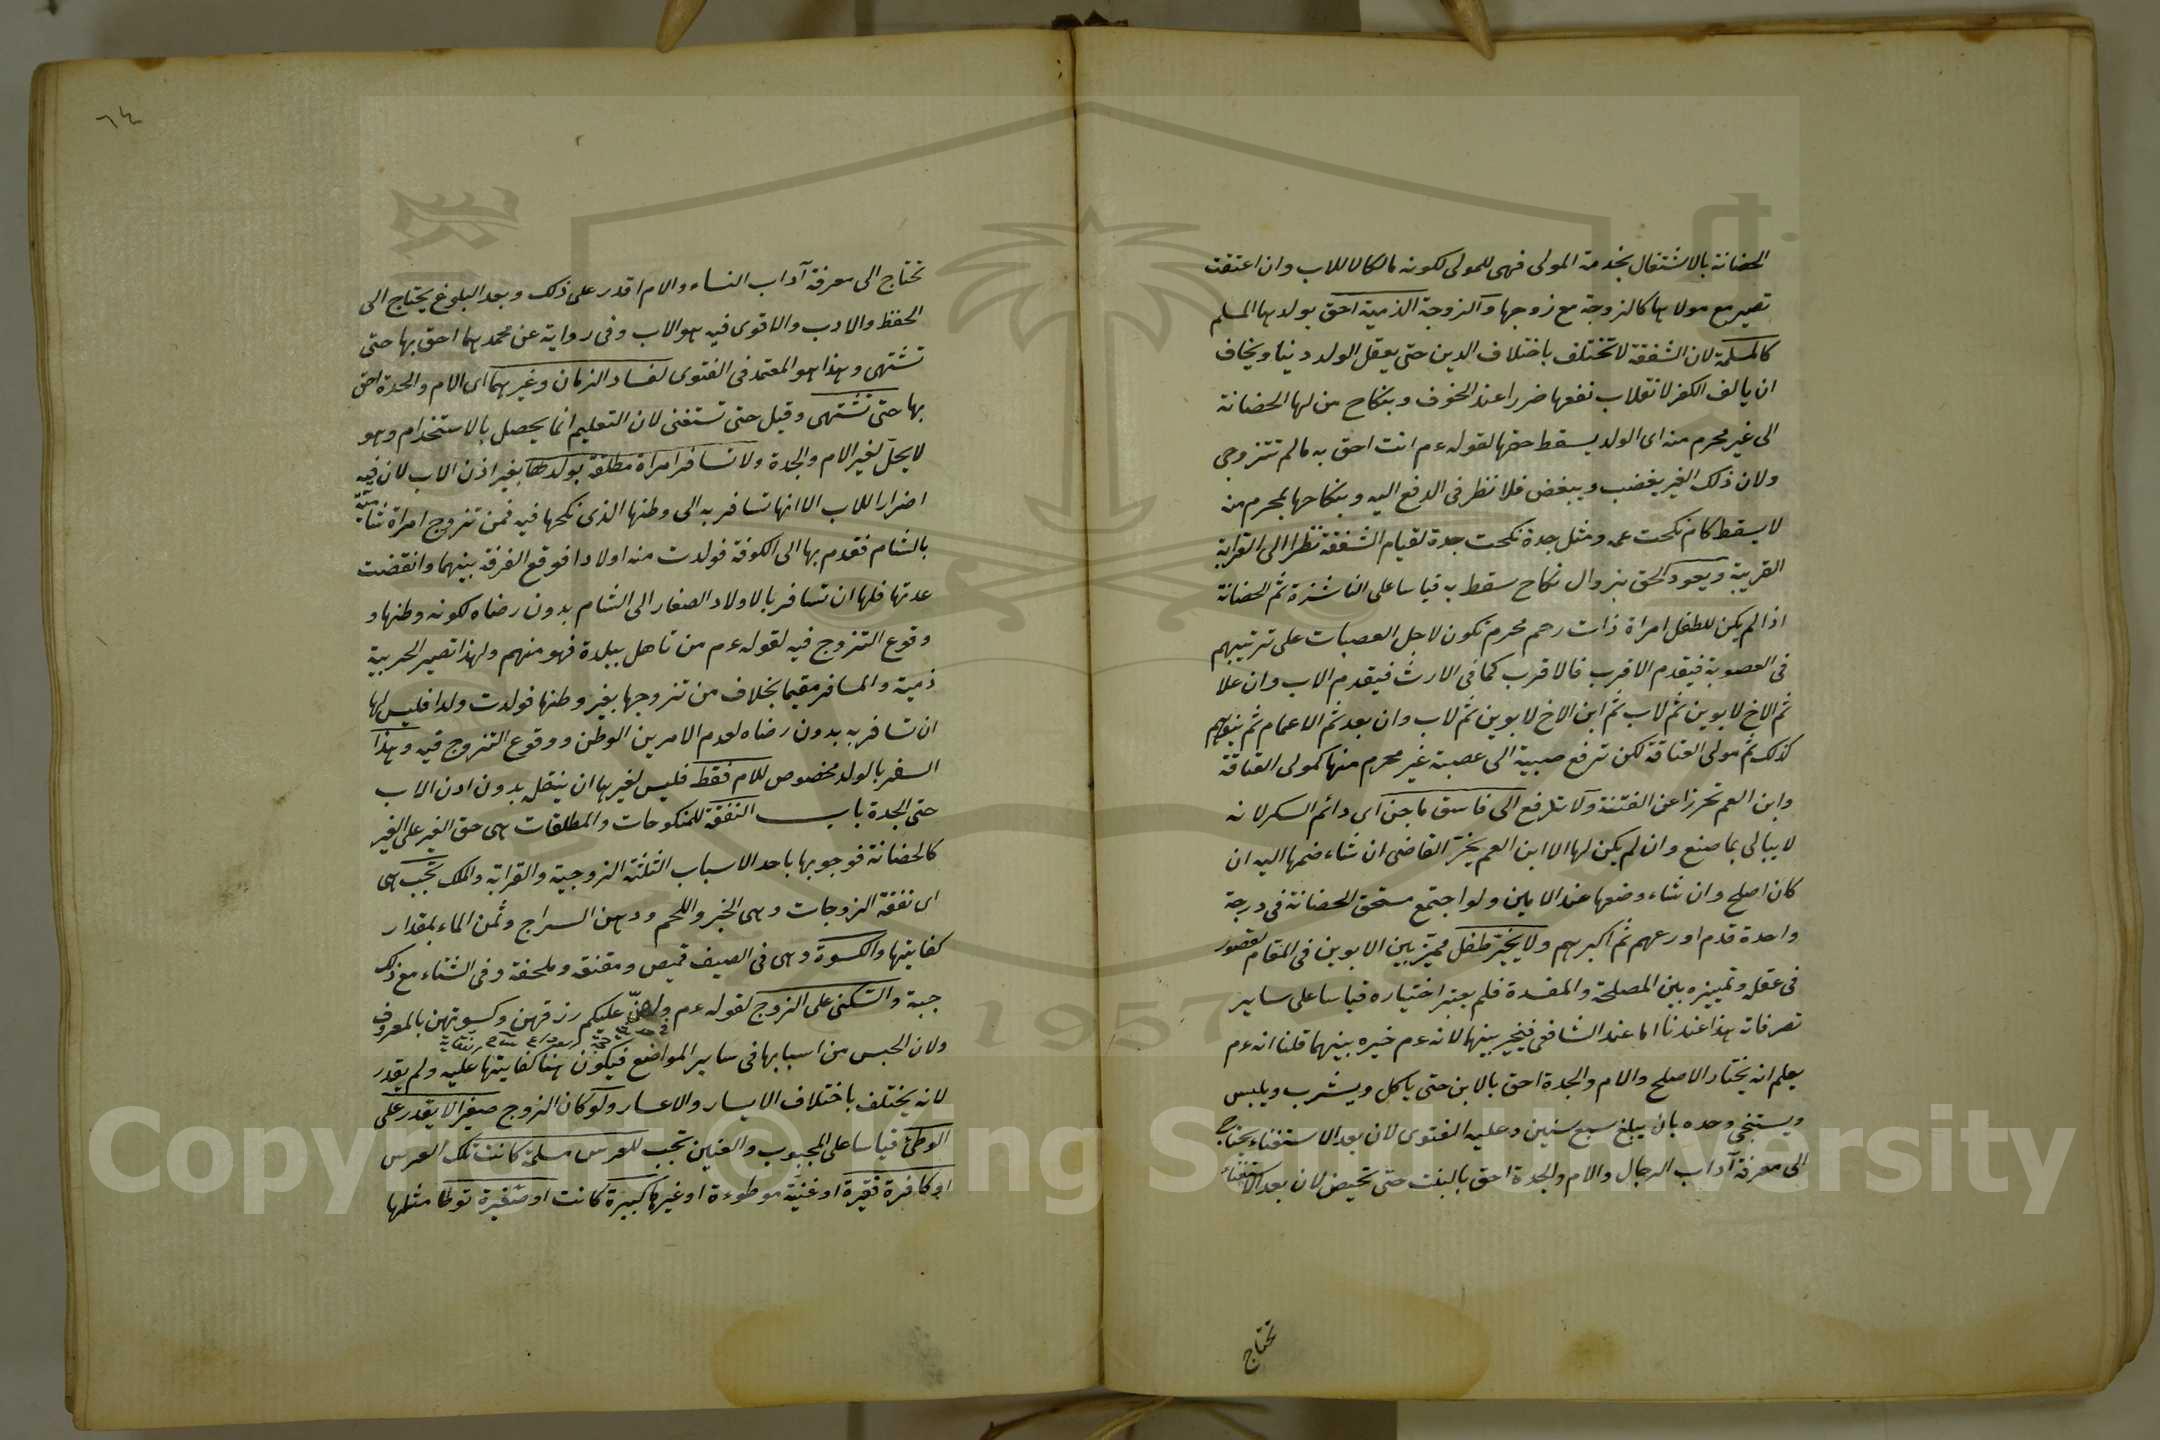 الحضانة بالاشتغال بخدمة المولى فهى للمولى لكونه مالكا لا للاب وان اعتقت
تصير مع مولاها كالزوجة مع زوجها والزوجة الذمية احق بولدها المسلم
كالمسلمة لان الشفقة لا تختلف باختلاف الدين حتى يعقل الولد دينا ويخاف
ان يالف الكفر لانقلاب نفعها ضررا عند الخوف وبنكاح من لها الحضانة
الى غير محرم منه اى الولد يسقط حقها لقوله عم انت احق به مالم تتزوجى
ولان ذلك الغير يغضب ويبغض فلا نظر فى الدفع اليه وبنكاحها بمحرم منه
لا يسقط كام نكحت عمه ومثل جدة نكحت جدة لقيام الشفقة نظرا الى القرابة
القريبة ويعود الحق بزوال نكاح سقط به قياسا على الناشزة ثم الحضانة
اذا لم يكن للطفل امراة ذات رحم محرم تكون لاجل العصبات على ترتيبهم
فى العصوبة فيقدم الاقرب فالاقرب كما فى الارث فيقدم الاب وان علا
ثم الاخ لابوين ثم لاب ثم ابن الاخ لابوين ثم لاب وان بعد ثم الاعمام ثم بنوهم
كذلك ثم مولى العتاقة لكن ترفع صبية الى عصبة غير محرم منها كمولى العتاقة
وابن العم تحرزا عن الفتنة ولا تدفع الى فاسق ماجن اى دائم السكر لانه
لا يبالى بما صنع وان لم يكن لها الا ابن العم يخير القاضى ان شاء ضمها اليه ان
كان اصلح وان شاء وضعها عند الامين ولو اجتمع مستحق الحضانة فى درجة
واحدة قدم اورعهم ثم اكبرهم ولا يخير طفل مميز بين الابوين فى المقام لقصور
فى عقله وتمييزه بين المصلحة والمفسدة فلم يعتبر اختياره قياسا على ساير
تصرفاته هذا عندنا اما عند الشافعى فيخير بينهما لانه عم خيره بينهما قلنا انه عم
يعلم انه يختار الاصلح والام والجدة احق بالابن حتى ياكل ويشرب ويلبس
ويستنجى وحده بان يبلغ سبع سنين وعليه الفتوى لان بعد الاستغناء يحتاج
الى معرفة آداب الرجال والام والجدة احق بالبنت حتى تحيض لان بعد الاستغناء
تحتاج
٦٤
تحتاج الى معرفة آداب النساء والام اقدر على ذلك وبعد البلوغ يحتاج الى
الحفظ والادب والاقوى فيه هو الاب وفى رواية عن محمد هما احق بها حتى
تشتهى وهذا هو المعتمد فى الفتوى لفساد الزمان وغيرهما اى الام والجدة احق
بها حتى تشتهى وقيل حتى تستغنى لان التعليم انما يحصل بالاستخدام وهو
لا يحل لغير الام والجدة ولا تسافر امراة مطلقة بولدها بغير اذن الاب لان فيه
اضرارا للاب الا انها تسافر به الى وطنها الذى نكحها فيه فمن تزوج امراة شامية
بالشام فقدم بها الى الكوفة فولدت منه اولادا فوقع الفرقة بينهما وانقضت
عدتها فلها ان تسافر بالاولاد الصغار الى الشام بدون رضاه لكونه وطنها و
وقوع التزوج فيه لقوله عم من تاهل ببلدة فهو منهم ولهذا تصير الحربية
ذمية والمسافر مقيما بخلاف من تزوجها بغير وطنها فولدت ولدا فليس لها
ان تسافر به بدون رضاه لعدم الامرين الوطن ووقوع التزوج فيه وهذا
السفر بالولد مخصوص للام فقط فليس لغيرها ان ينقل بدون اذن الاب
حتى الجدة باب النفقة للمنكوحات والمطلقات هى حق الغير على الغير
كالحضانة فوجوبها باحد الاسباب الثلثة الزوجية والقرابة والملك تجب هى
اى نفقة الزوجات وهى الخبز واللحم ودهن السراج وثمن الماء بمقدار
كفايتها والكسوة وهى فى الصيف قميص ومقنعة وملحفة وفى الشتاء مع ذلك
جبة والسكنى على الزوج لقوله عم ولهن عليكم رزقهن وكسوتهن بالمعروف
ولان الحبس من اسبابها فى ساير المواضع فيكون هنا كفايتها عليه ولم يقدر
لانه يختلف باختلاف الايسار والاعسار ولو كان الزوج صغيرا لا يقدر على
الوطئ قياسا على المجبوب والعنين تجب للعرس مسلمة كانت تلك العرس
او كافرة فقيرة او غنية موطوءة او غيرها كبيرة كانت او صغيرة توطا مثلها
Copyright © King Saud University
1957